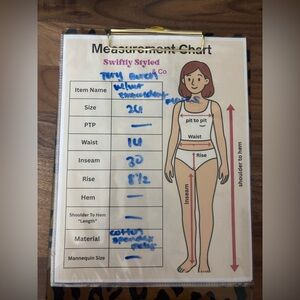 Measurement Chart
Swiftly Styled
& Co
Tory Burch
Item Name
Size 26
PTP —
Waist 14
Inseam 30
Rise 8 1/2
Hem —
Shoulder To Hem
"Length" —
Material cotton
Mannequin Size —
pit to pit
Waist
Rise
Inseam
shoulder to hem